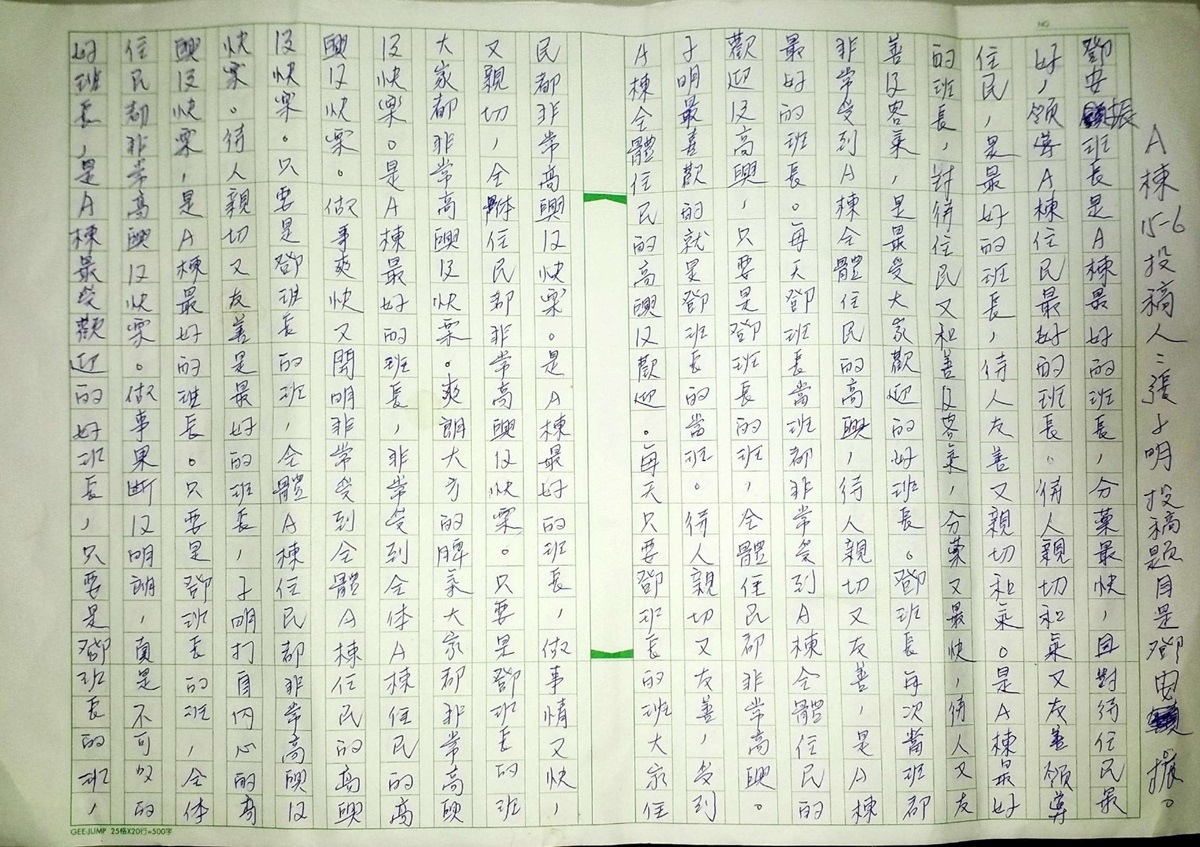 NO.
A棟15-6投稿人:張子明投稿題目是鄧安振。
鄧安振班長是A棟最好的班長,分菜最快,且對待住民最
好,領導A棟住民最好的班長。待人親切和氣又友善領導
住民,是最好的班長,待人友善又親切和氣。是A棟最好
的班長,對待住民又和善及客氣,分菜又最快,待人又友
善及客氣,是最受大家歡迎的好班長。鄧班長每次當班都
非常受到A棟全體住民的高興,待人親切又友善,是A棟
最好的班長。每天鄧班長當班都,非常受到A棟全體住民的
歡迎及高興,只要是鄧班長的班。,全體住民都非常高興。
子明最喜歡的就是鄧班長的當班。待人親切又友善,受到
A棟全體住民的高興及歡迎。每天只要鄧班長的班大家住
民都非常高興及快樂。是A棟最好的班長,做事情又快,
又親切,全體住民都非常高興及快樂。只要是鄧班長的班,
大家都非常高興及快樂。爽朗大方的脾氣大家都非常高興
及快樂。是A棟最好的班長,非常受到全体A棟住民的高
興及快樂。做事爽快又開明非常受到全體A棟住民的高興
及快樂。只要是鄧班長的班,全體A棟住民都非常高興及
快樂。待人親切又友善是最好的班長,子明打自內心的高
興及快樂,是A棟最好的班長。只要是鄧班長的班,全体
住民都非常高興及快樂。做事果斷及明朗,真是不可多的
好班長,是A棟最受歡迎的好班長,只要是鄧班長的班,
GEEJUMP 25格X20行=500字